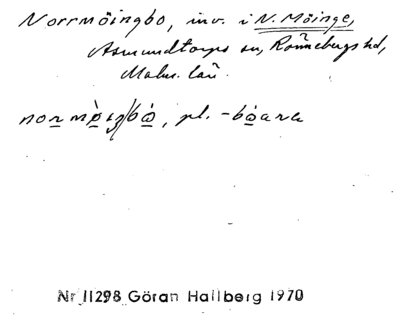 Norrmöingbo, inv. i N. Möinge,
Asmundtorps sn, Rönnebergs hd,
Malm. län.
pl. -bɷara
Nr 11298 Göran Hallberg 1970